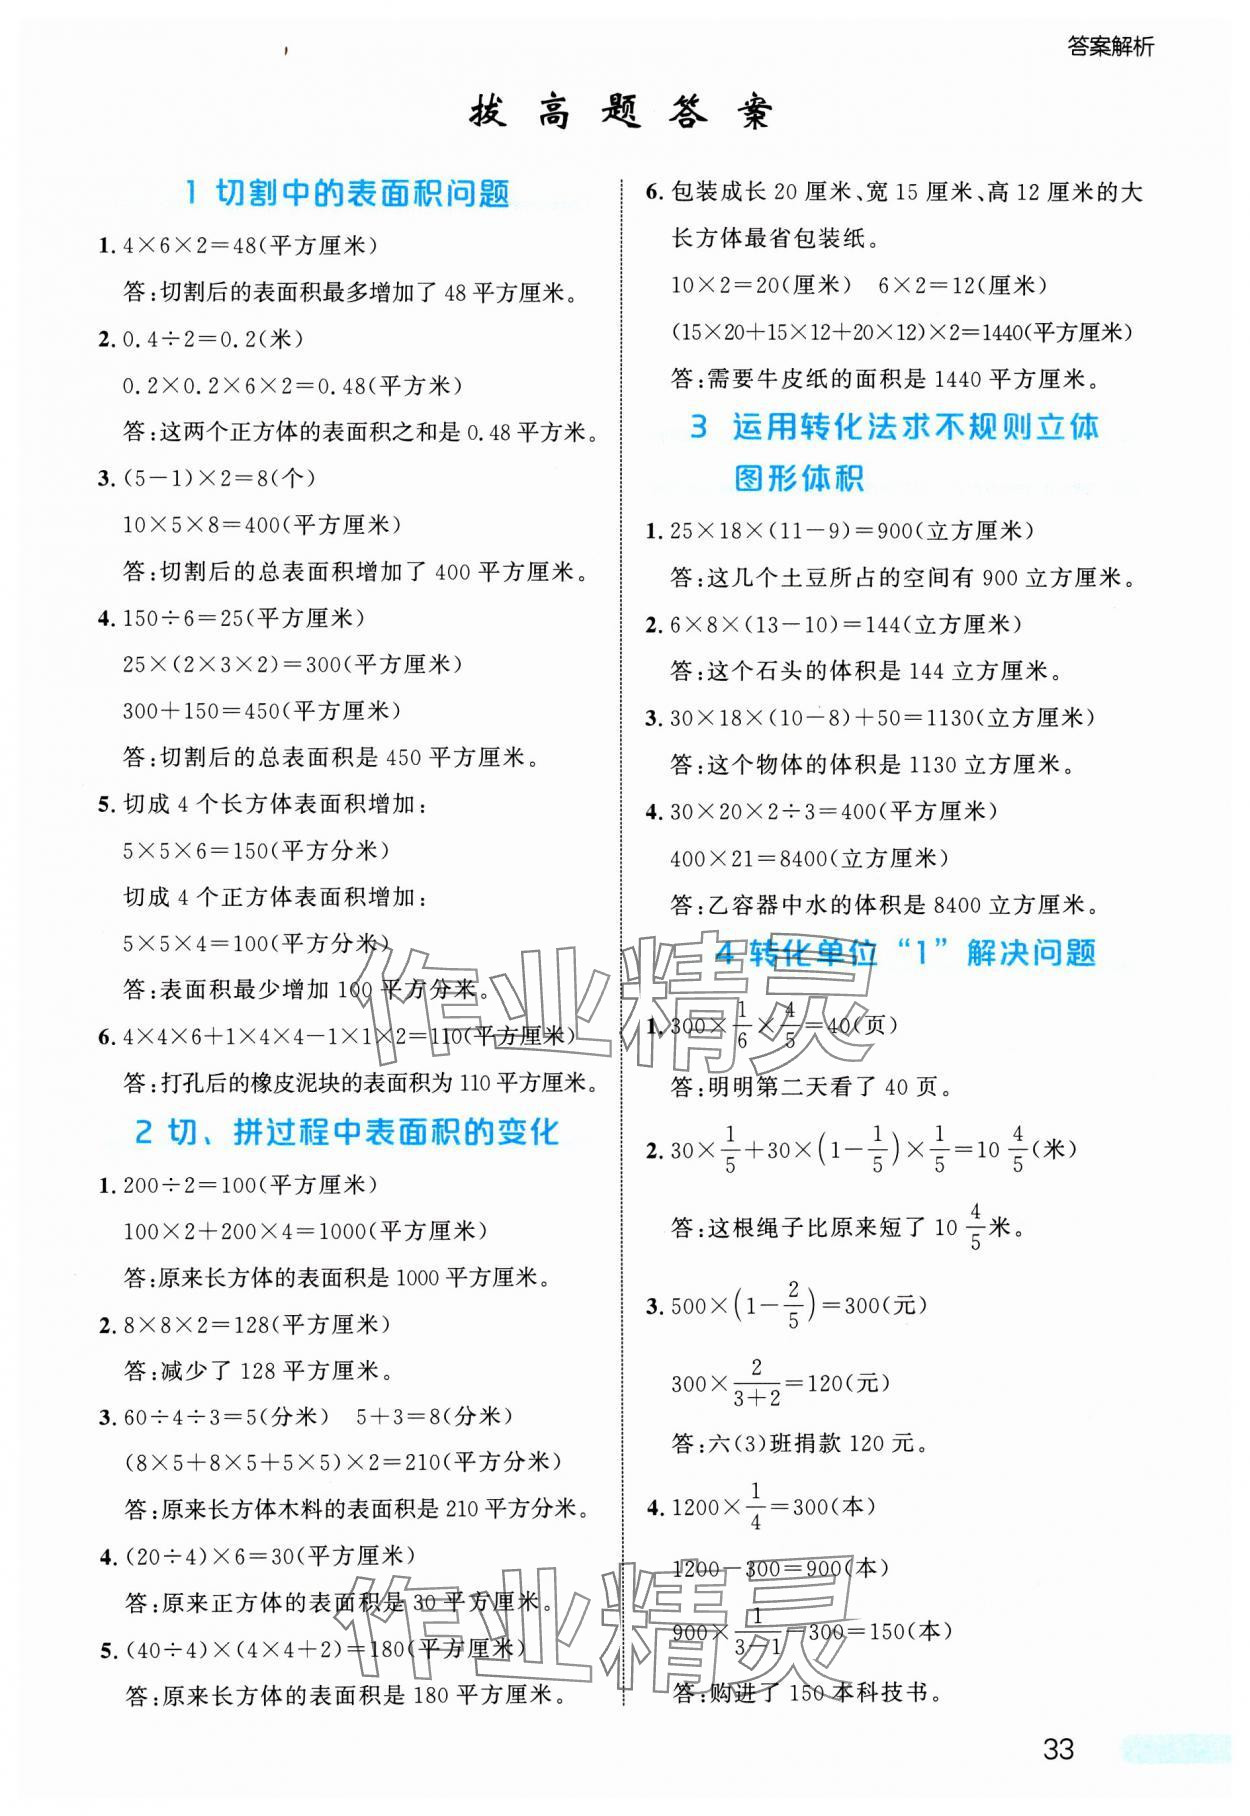 答案解析
拔高题答案
1 切割中的表面积问题
1. 4×6×2=48(平方厘米)
答:切割后的表面积最多增加了 48 平方厘米。
2. 0.4÷2=0.2(米)
0.2×0.2×6×2=0.48(平方米)
答:这两个正方体的表面积之和是 0.48 平方米。
3. (5−1)×2=8(个)
10×5×8=400(平方厘米)
答:切割后的总表面积增加了 400 平方厘米。
4. 150÷6=25(平方厘米)
25×(2×3×2)=300(平方厘米)
300+150=450(平方厘米)
答:切割后的总表面积是 450 平方厘米。
5. 切成 4 个长方体表面积增加:
5×5×6=150(平方分米)
切成 4 个正方体表面积增加:
5×5×4=100(平方分米)
答:表面积最少增加 100 平方分米。
6. 4×4×6+1×4×4−1×1×2=110(平方厘米)
答:打孔后的橡皮泥块的表面积为 110 平方厘米。
2 切、拼过程中表面积的变化
1. 200÷2=100(平方厘米)
100×2+200×4=1000(平方厘米)
答:原来长方体的表面积是 1000 平方厘米。
2. 8×8×2=128(平方厘米)
答:减少了 128 平方厘米。
3. 60÷4÷3=5(分米) 5+3=8(分米)
(8×5+8×5+5×5)×2=210(平方分米)
答:原来长方体木料的表面积是 210 平方分米。
4. (20÷4)×6=30(平方厘米)
答:原来正方体的表面积是 30 平方厘米。
5. (40÷4)×(4×4+2)=180(平方厘米)
答:原来长方体的表面积是 180 平方厘米。
6. 包装成长 20 厘米、宽 15 厘米、高 12 厘米的大
长方体最省包装纸。
10×2=20(厘米) 6×2=12(厘米)
(15×20+15×12+20×12)×2=1440(平方厘米)
答:需要牛皮纸的面积是 1440 平方厘米。
3 运用转化法求不规则立体
图形体积
1. 25×18×(11−9)=900(立方厘米)
答:这几个土豆所占的空间有 900 立方厘米。
2. 6×8×(13−10)=144(立方厘米)
答:这个石头的体积是 144 立方厘米。
3. 30×18×(10−8)+50=1130(立方厘米)
答:这个物体的体积是 1130 立方厘米。
4. 30×20×2÷3=400(平方厘米)
400×21=8400(立方厘米)
答:乙容器中水的体积是 8400 立方厘米。
4 转化单位“1”解决问题
1. 300×1/6×4/5=40(页)
答:明明第二天看了 40 页。
2. 30×1/5+30×(1−1/5)×1/5=10 4/5(米)
答:这根绳子比原来短了 10 4/5 米。
3. 500×(1−2/5)=300(元)
300×2/(3+2)=120(元)
答:六(3)班捐款 120 元。
4. 1200×1/4=300(本)
1200−300=900(本)
900×1/(3−1)−300=150(本)
答:购进了 150 本科技书。
33
作业精灵
作业精灵